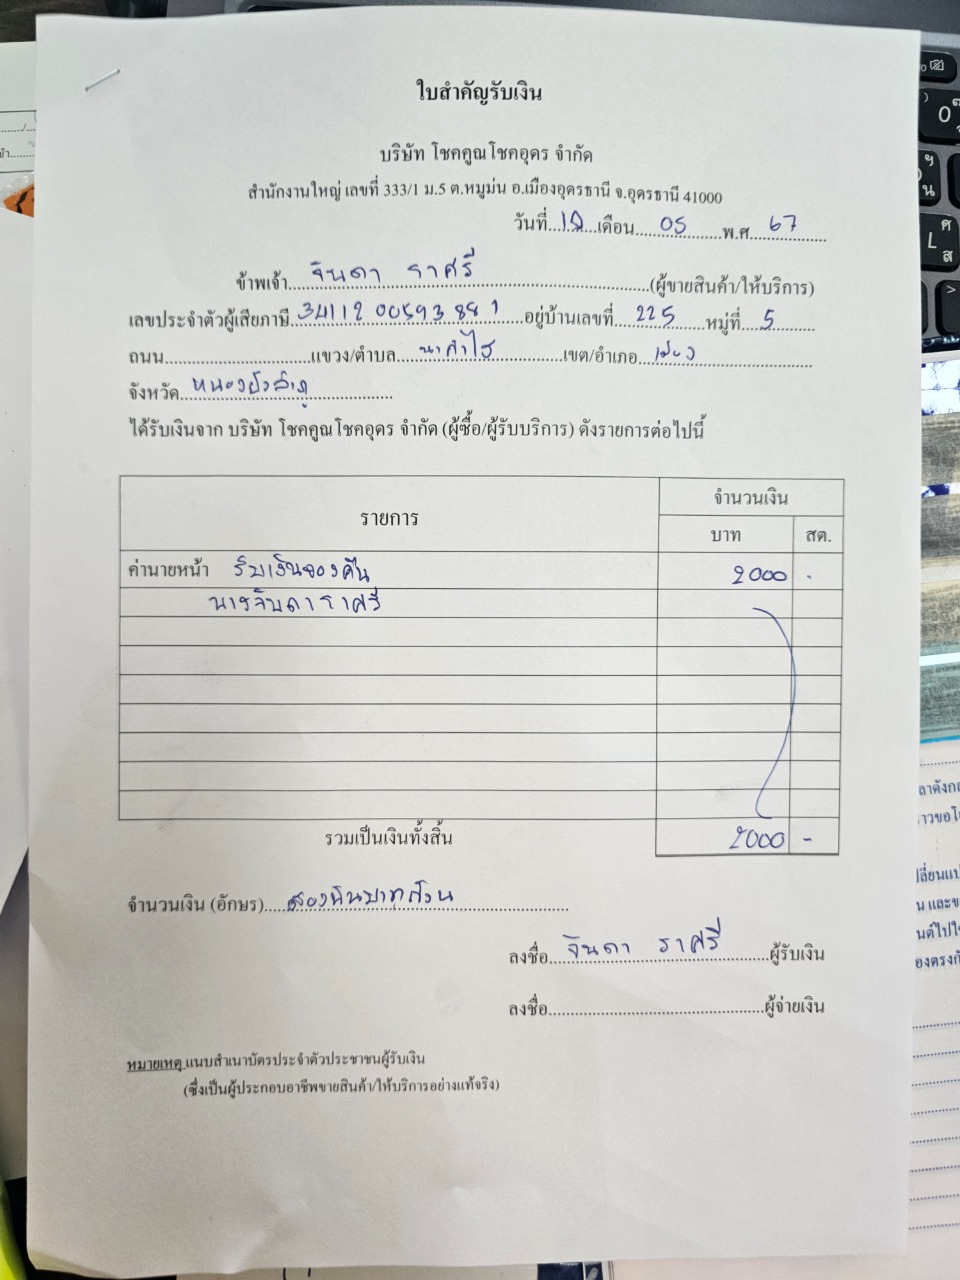 ใบสำคัญรับเงิน
บริษัท โชคคูณโชคอุดร จำกัด
สำนักงานใหญ่ เลขที่ 333/1 ม.5 ต.หมูม่น อ.เมืองอุดรธานี จ.อุดรธานี 41000
วันที่.........เดือน...05...พ.ศ...67
ข้าพเจ้า...จินดา ราศรี...(ผู้ขายสินค้า/ให้บริการ)
เลขประจำตัวผู้เสียภาษี 3411200593881...อยู่บ้านเลขที่...225...หมู่ที่...5...
ถนน...แขวง/ตำบล...นาคำไฮ...เขต/อำเภอ...เมือง...
จังหวัด...หนองบัวลำภู...
ได้รับเงินจาก บริษัท โชคคูณโชคอุดร จำกัด (ผู้ซื้อ/ผู้รับบริการ) ดังรายการต่อไปนี้
รายการ จำนวนเงิน
บาท สต.
ค่านายหน้า รับเงินจองคืน 2000 -
นางจินดา ราศรี
รวมเป็นเงินทั้งสิ้น 2000 -
จำนวนเงิน (อักษร)...สองพันบาทถ้วน...
ลงชื่อ...จินดา ราศรี...ผู้รับเงิน
ลงชื่อ...ผู้จ่ายเงิน
หมายเหตุ แนบสำเนาบัตรประจำตัวประชาชนผู้รับเงิน
(ซึ่งเป็นผู้ประกอบอาชีพขายสินค้า/ให้บริการอย่างแท้จริง)